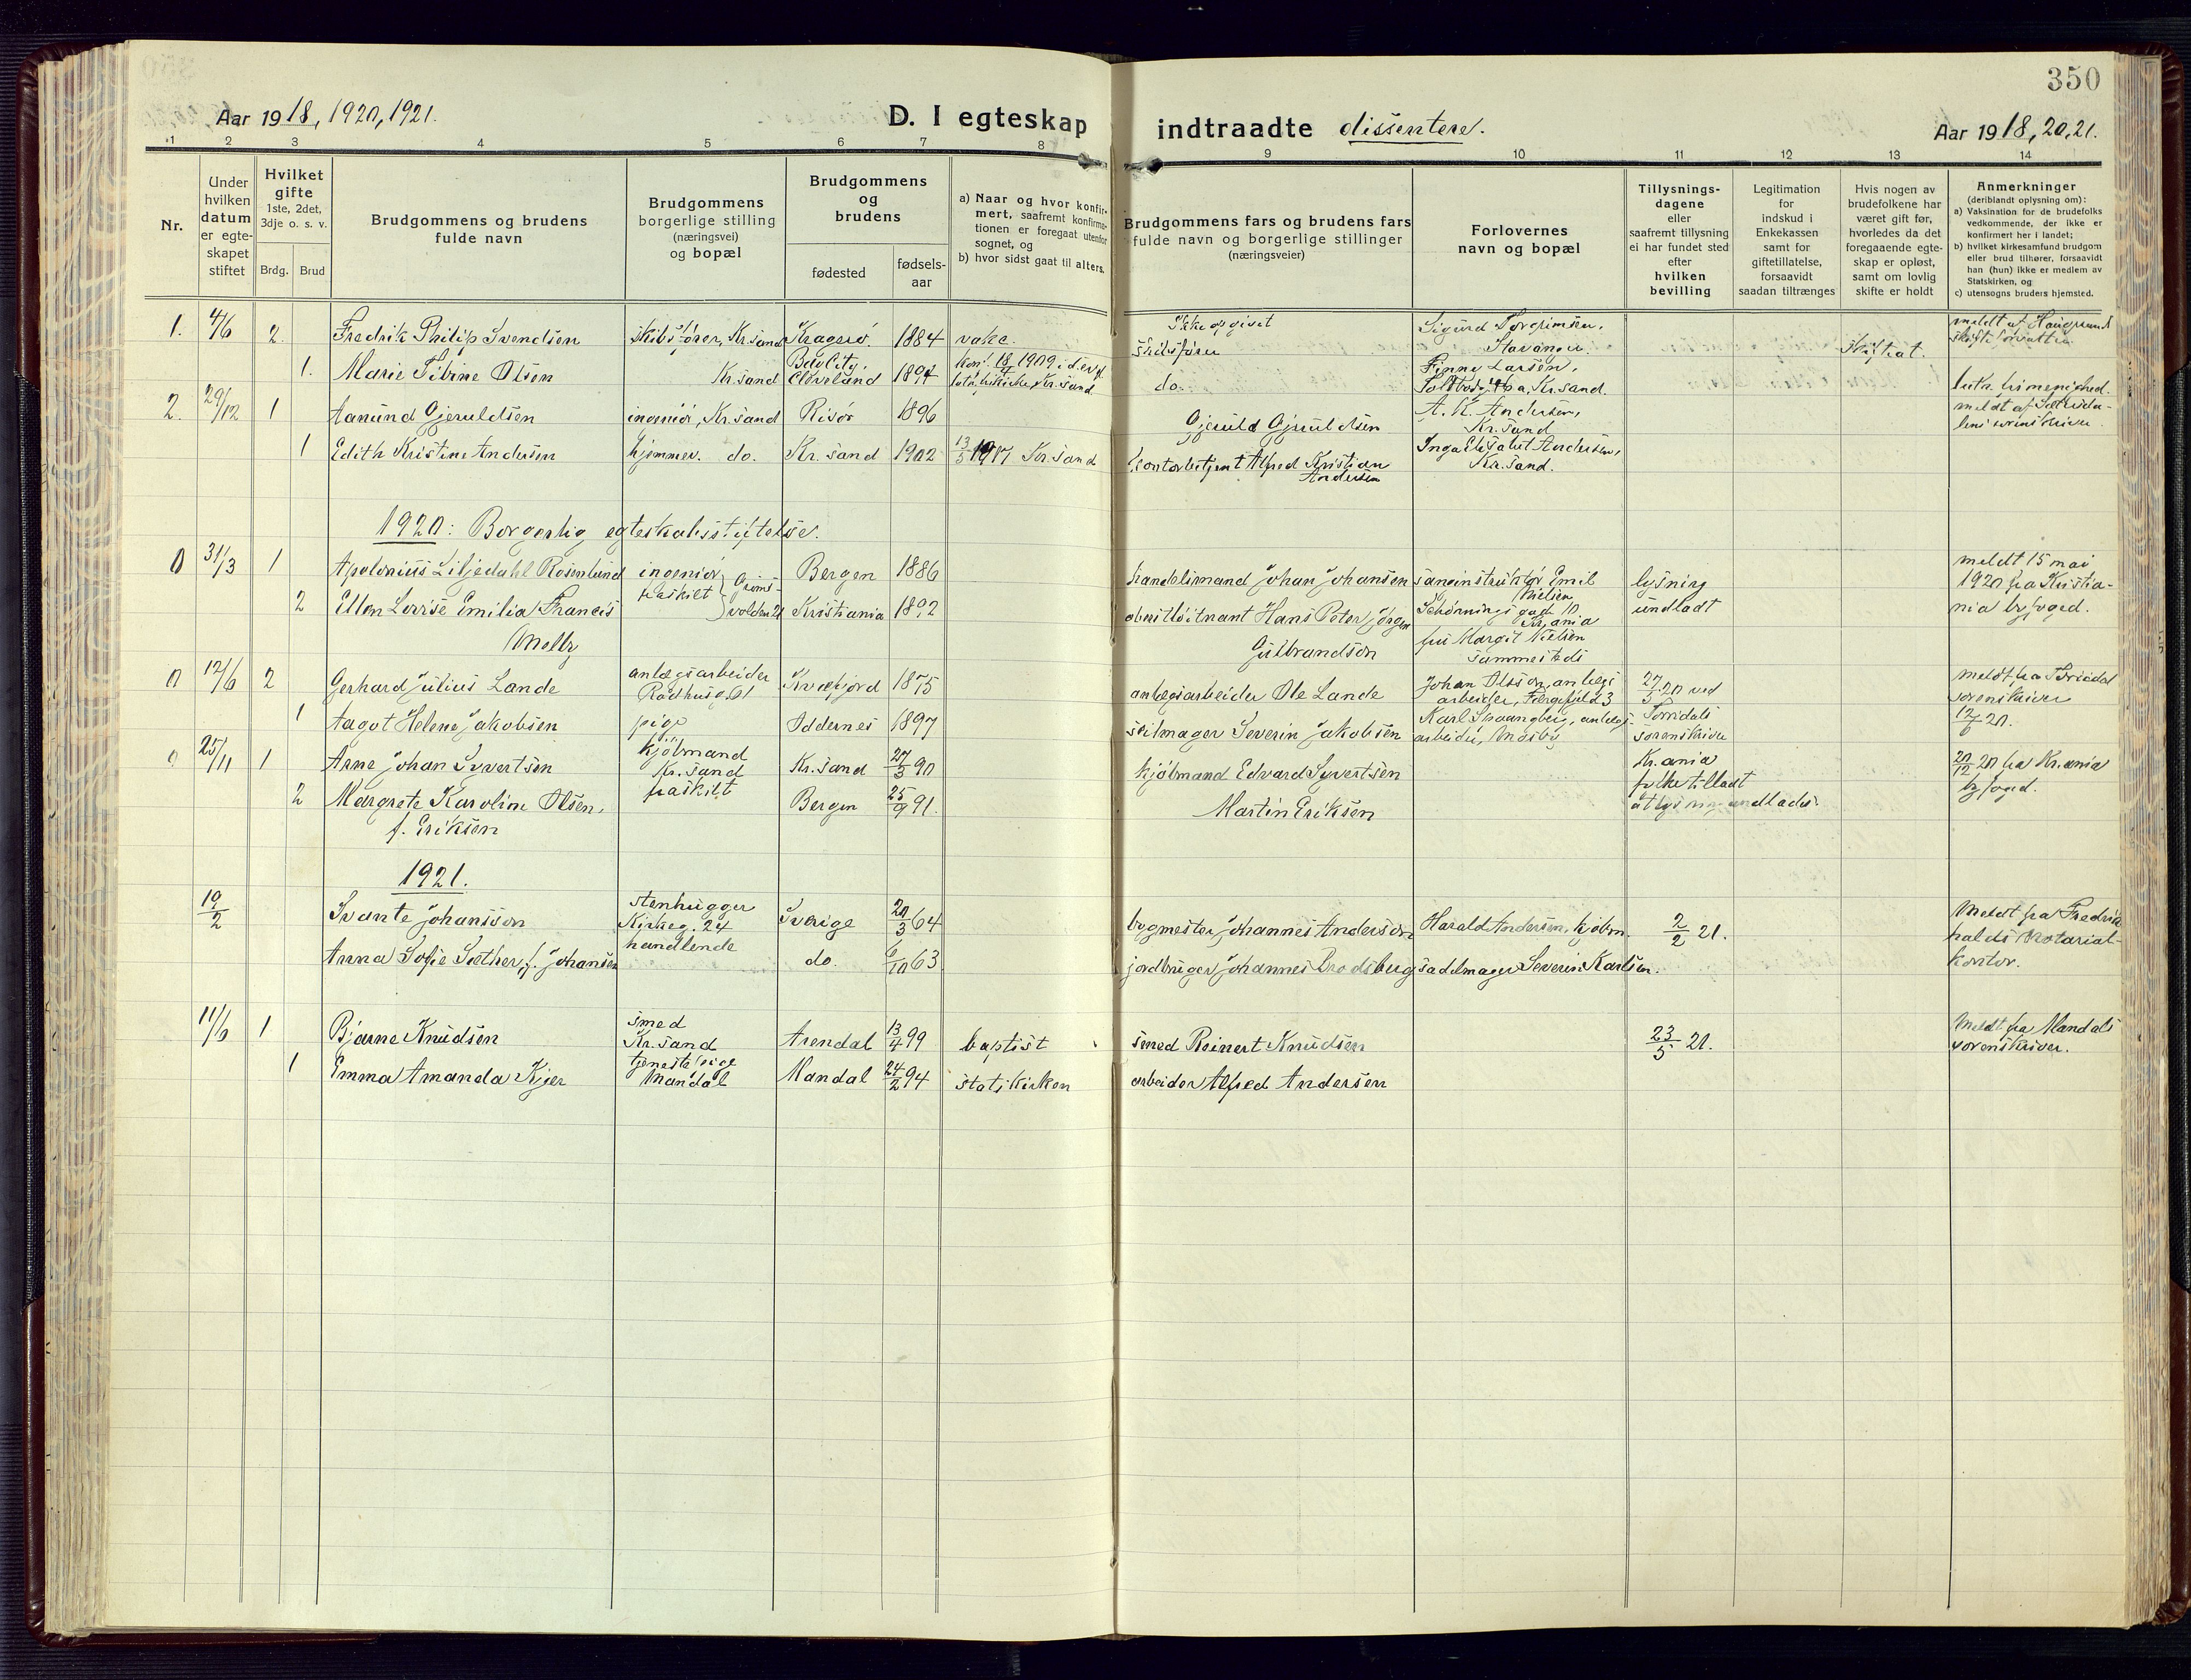 350
Aar 1918, 1920, 1921.
D. I egteskap indtraadte dissentere.
Aar 1918, 20, 21.
1 2 3 4 5 6 7 8 9 10 11 12 13 14
Nr.
Under hvilken datum er egteskapet stiftet
Hvilket gifte 1ste, 2det, 3dje o. s. v.
Brdg. Brud
Brudgommens og brudens fulde navn
Brudgommens borgerlige stilling (næringsvei) og bopæl
Brudgommens og brudens
fødested
fødselsaar
a) Naar og hvor konfirmert, saafremt konfirmationen er foregaat utenfor sognet, og
b) hvor sidst gaat til alters.
Brudgommens fars og brudens fars fulde navn og borgerlige stillinger (næringsveier)
Forlovernes navn og bopæl
Tillysningsdagene eller saafremt tillysning ei har fundet sted efter hvilken bevilling
Legitimation for indskud i Enkekassen samt for giftetillatelse, forsaavidt saadan tiltrænges
Hvis nogen av brudefolkene har været gift før, hvorledes da det foregaaende egteskap er opløst, samt om lovlig skifte er holdt
Anmerkninger (deriblandt oplysning om):
a) Vaksination for de brudefolks vedkommende, der ikke er konfirmert her i landet;
b) hvilket kirkesamfund brudgom eller brud tilhører, forsaavidt han (hun) ikke er medlem av Statskirken, og
c) utensogns bruders hjemsted.
1. 4/6 2. Fredrik Philip Svendsen skibsfører, Kr.sand Kragerø. 1884 vakc. Ikke opgivet skibsfører Sigurd Torgrimsen, Stavanger.
1. Marie Tibine Olsen Kr.sand Bay City, Cleveland 1894 konf. 18/4 1909 i d. ev. luth. frikirke, Kr.sand do. Finny Larsen, Kr.sand.
2. 29/12 1 Aanund Gjeruldsen ingeniør, Kr.sand Risør 1896 Gjeruld Gjeruldsen A. K. Andersen, Kr.sand
1 Edith Kristine Andersen hjemmev. do. Kr.sand 1902 13/5 1917 Kr.sand kontorbetjent Alfred Kristian Andersen Inga Elisabet Andersen, Kr.sand.
1920: Borgerlig egteskabsstiftelse.
0 31/3 1 Apolonius Liljedahl Rosenlund ingeniør Bergen 1886 handelsmand Johan Johansen sanginstruktør Emil Nielsen lysning meldt 15 mai
2 Ellen Lovise Emilia Francis Melby fraskilt Kristiania 1892 oberstløitnant Hans Peter Jørgen Gulbrandson Schønnings gade 10 Kr.ania fru Margit Nielsen sammesteds undladt 1920 fra Kristiania byfoged.
0 12/6 2 Gerhard Julius Lande anlægsarbeider Raadhusg. 61 Kvæfjord 1875 anlægsarbeider Ole Lande Johan Olsson, anlægsarbeider, 27/5 20 ved meldt fra Torridal sorenskriver
1 Aagot Helene Jakobsen pige Oddernes 1897 seilmager Severin Jakobsen Karl Spaangberg, anlægsarbeider, Mosby Torridals sorenskriver 12/6 20.
25/11 1 Arne Johan Syvertsen kjøbmand Kr.sand Kr.sand 27/3 90 kjøbmand Edvard Syvertsen Kr.ania 20/12 20 fra Kr.ania
2 Margrete Karoline Olsen, f. Eriksen fraskilt Bergen 25/9 91. Martin Eriksen byfoged.
1921.
19/2 Svante Johansson stenhugger Kirkeg. 24 Sverige 20/3 64 bygmester Johannes Anderson Harald Andersen, kjøbm. 2/2 21. Meldt fra Fredrikshalds Notarialkontor.
Anna Sofie Sæther, f. Johansen handlende do. 6/10 63 jordbruger Johannes Brodsberg sadelmager Severin Karlsen.
11/6 1 Bjarne Knudsen smed Kr.sand Arendal 13/4 99 baptist smed Reinert Knudsen 23/5 21. Meldt fra Mandals sorenskriver.
1 Emma Amanda Kjær tjenestepige Mandal Mandal 24/2 94 statskirken arbeider Alfred Andersen